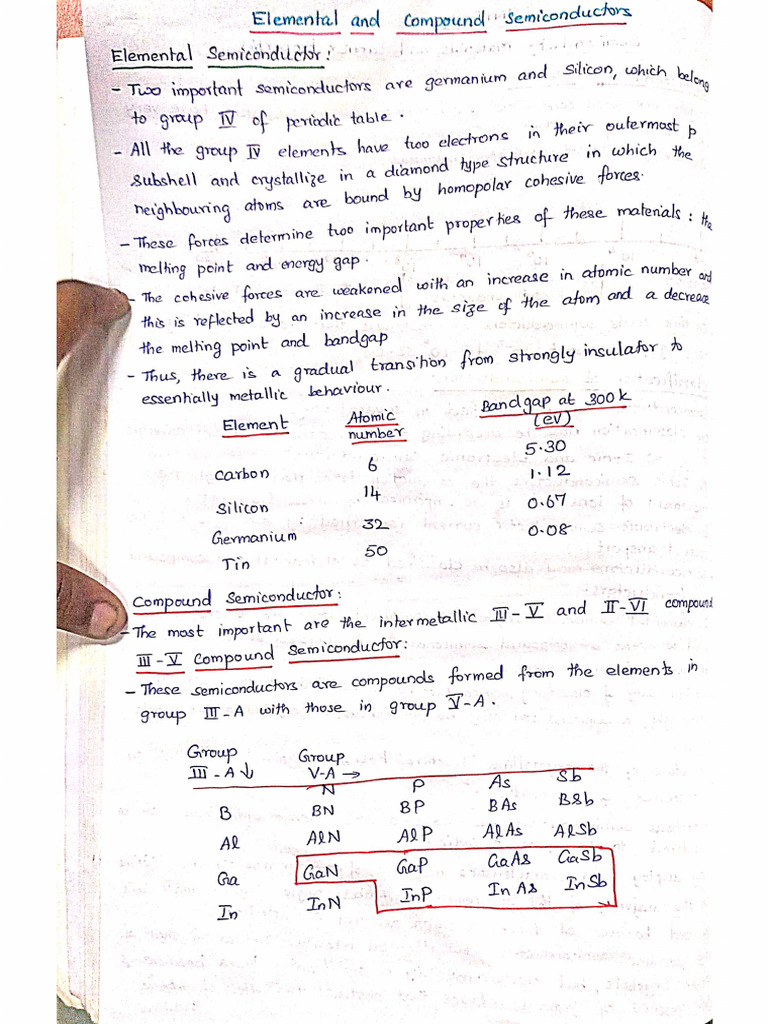 Elemental and Compound Semiconductors
Elemental Semiconductor:
- Two important semiconductors are germanium and Silicon, which belong
to group IV of periodic table.
- All the group IV elements have two electrons in their outermost p
subshell and crystallize in a diamond type structure in which the
neighbouring atoms are bound by homopolar cohesive forces.
- These forces determine two important properties of these materials: the
melting point and energy gap.
- The cohesive forces are weakoned with an increase in atomic number and
this is reflected by an increase in the size of the atom and a decrease
the melting point and bandgap
- Thus, there is a gradual transition from strongly insulator to
essentially metallic behaviour.
Element Atomic number Bandgap at 300k (eV)
Carbon 6 5.30
Silicon 14 1.12
Germanium 32 0.67
Tin 50 0.08
Compound Semiconductor:
- The most important are the intermetallic III-V and II-VI compound
III-V Compound Semiconductor:
- These semiconductors are compounds formed from the elements in
group III-A with those in group V-A.
Group III-A ↓ Group V-A →
N P As Sb
B BN BP BAs BSb
Al AlN AlP AlAs AlSb
Ga GaN GaP GaAs GaSb
In InN InP InAs InSb